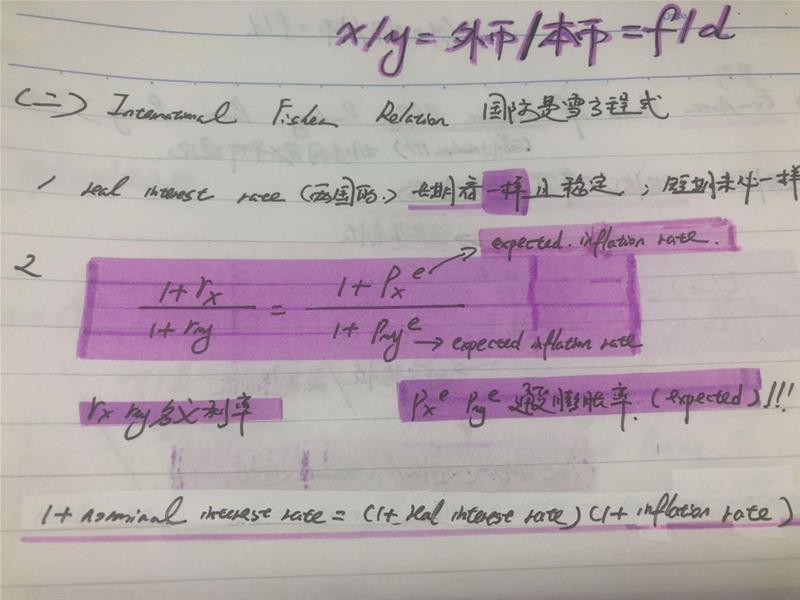 x/y = 外币/本币 = f/d
(二) International Fisher Relation 国际费雪方程式
1 real interest rate (两国的) 长期看一样且稳定；短期未必一样
expected inflation rate.
2 (1+r_x)/(1+r_y) = (1+P_x^e)/(1+P_y^e)
→ expected inflation rate.
r_x r_y 名义利率 P_x^e P_y^e 通货膨胀率. (expected)!!!
1 + nominal interest rate = (1+ real interest rate) (1+ inflation rate)